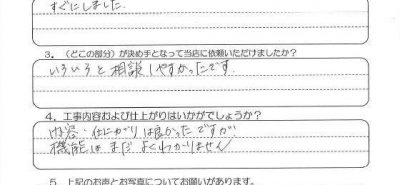 すぐにしました.
3．（どこの部分）が決め手となって当店に依頼いただけましたか？
いろいろと相談しやすかったです.
4．工事内容および仕上がりはいかがでしょうか？
内容・仕上がりは良かったですが
機能はまだよくわかりません
5．上記のお声とお写真についてお願いがあります。